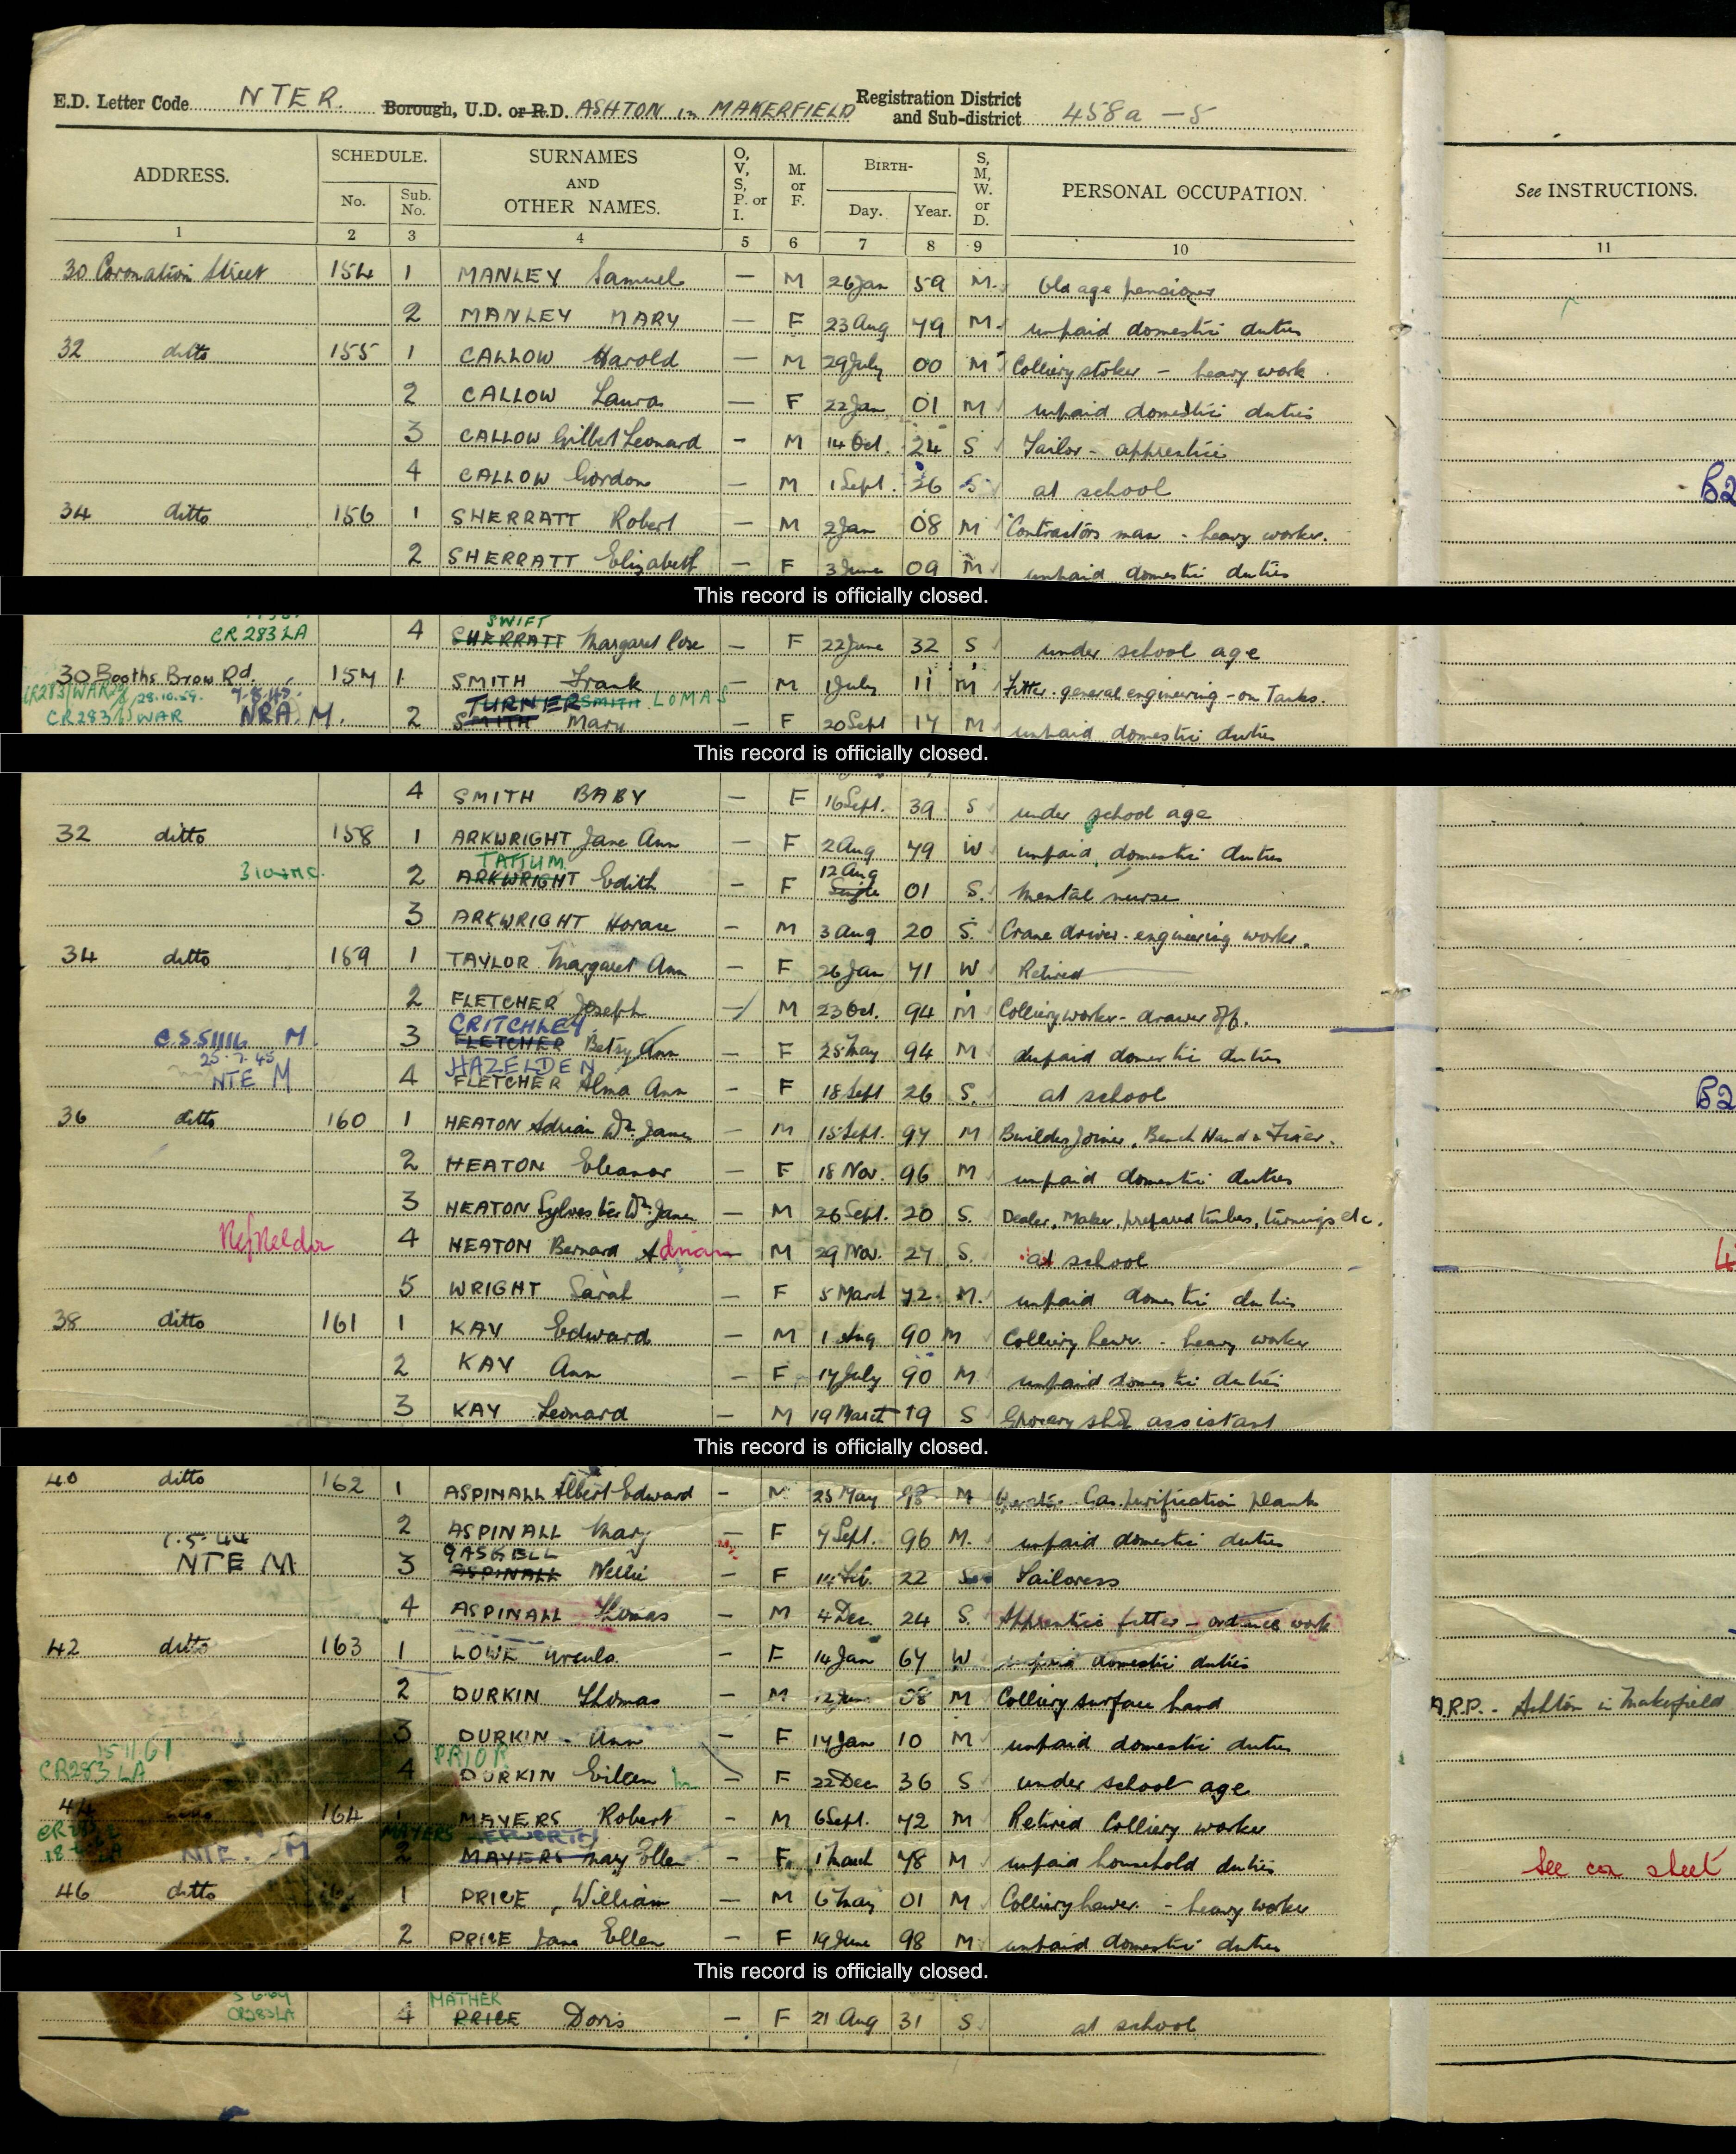 E.D. Letter Code NTER. Borough, U.D. or R.D. ASHTON in MAKERFIELD Registration District and Sub-district 458a - 5
ADDRESS. SCHEDULE. No. Sub. No. SURNAMES AND OTHER NAMES. O, V, S, P. or I. M. or F. BIRTH- Day. Year. S, M, W. or D. PERSONAL OCCUPATION. See INSTRUCTIONS.
1 2 3 4 5 6 7 8 9 10 11
30 Coronation Street 154 1 MANLEY Samuel — M 26 Jan 59 M. Old age pensioner
2 MANLEY MARY — F 23 Aug 79 M. unpaid domestic duties
32 ditto 155 1 CALLOW Harold — M 29 July 00 M Colliery stoker - heavy work
2 CALLOW Laura — F 22 Jan 01 M unpaid domestic duties
3 CALLOW Gilbert Leonard - M 14 Oct. 24 S Tailor - apprentice
4 CALLOW Gordon — M 1 Sept. 26 S at school B2
34 ditto 156 1 SHERRATT Robert — M 2 Jan 08 M Contractors man - heavy worker.
2 SHERRATT Elizabeth — F 3 June 09 M unpaid domestic duties
This record is officially closed.
SWIFT
CR283 LA 4 SHERRATT Margaret Rose — F 22 June 32 S under school age
30 Booths Brow Rd. 157 1 SMITH Frank — M 1 July 11 M Fitter - general engineering - on Tanks.
28.10.59. 7.8.45. TURNER SMITH LOMAS
CR283 WAR NRA M. 2 SMITH Mary — F 20 Sept 17 M unpaid domestic duties
This record is officially closed.
4 SMITH BABY — F 16 Sept. 39 S under school age
32 ditto 158 1 ARKWRIGHT Jane Ann — F 2 Aug 79 W unpaid domestic duties
TATTUM 12 Aug
2 ARKWRIGHT Edith — F Single 01 S. Mental nurse
3 ARKWRIGHT Horace — M 3 Aug 20 S. Crane driver - engineering works.
34 ditto 159 1 TAYLOR Margaret Ann — F 26 Jan 71 W Retired
2 FLETCHER Joseph — M 23 Oct. 94 M Colliery worker - drawer off.
CRITCHLEY
M. 3 FLETCHER Betsy Ann — F 25 May 94 M unpaid domestic duties
25.7.45 HAZELDEN
NTE M 4 FLETCHER Alma Ann — F 18 Sept 26 S. at school B2
36 ditto 160 1 HEATON Adrian Wm. James — M 15 Sept. 97 M Builders Joiner, Bench Hand & Fixer.
2 HEATON Eleanor — F 18 Nov. 96 M unpaid domestic duties
3 HEATON Sylvester Wm. James — M 26 Sept. 20 S. Dealer, Maker, prepared timber, turnings etc.
4 HEATON Bernard Adrian M 29 Nov. 27 S. at school
5 WRIGHT Sarah — F 5 March 72 M. unpaid domestic duties
38 ditto 161 1 KAY Edward — M 1 Aug 90 M Colliery hewer - heavy worker
2 KAY Ann — F 17 July 90 M unpaid domestic duties
3 KAY Leonard — M 19 March 19 S Grocery shop assistant
This record is officially closed.
40 ditto 162 1 ASPINALL Albert Edward - M 25 May 98 M Gas purification plant
2 ASPINALL Mary — F 7 Sept. 96 M. unpaid domestic duties
1.5.44 GASKELL
NTE M 3 ASPINALL Nellie — F 14 Feb. 22 S Tailoress
4 ASPINALL Thomas — M 4 Dec. 24 S. Apprentice fitter - ordnance work
42 ditto 163 1 LOWE Ursula — F 14 Jan 67 W unpaid domestic duties
2 DURKIN Thomas — M 12 08 M Colliery surface hand A.R.P. - Ashton in Makerfield
3 DURKIN - Ann — F 17 Jan 10 M unpaid domestic duties
15 11 61 PRIOR
CR283 LA 4 DURKIN Eileen — F 22 Dec 36 S under school age
44 ditto 164 1 MAYERS Robert — M 6 Sept. 72 M Retired Colliery worker
MAYERS HEPWORTH
NTE. M 2 MAYERS Mary Ellen — F 1 March 78 M unpaid household duties See con sheet
46 ditto 1 PRICE, William — M 6 May 01 M Colliery hewer. - heavy worker
2 PRICE Jane Ellen — F 19 June 98 M unpaid domestic duties
This record is officially closed.
MATHER
CR283 LA 4 PRICE Doris — F 21 Aug 31 S at school